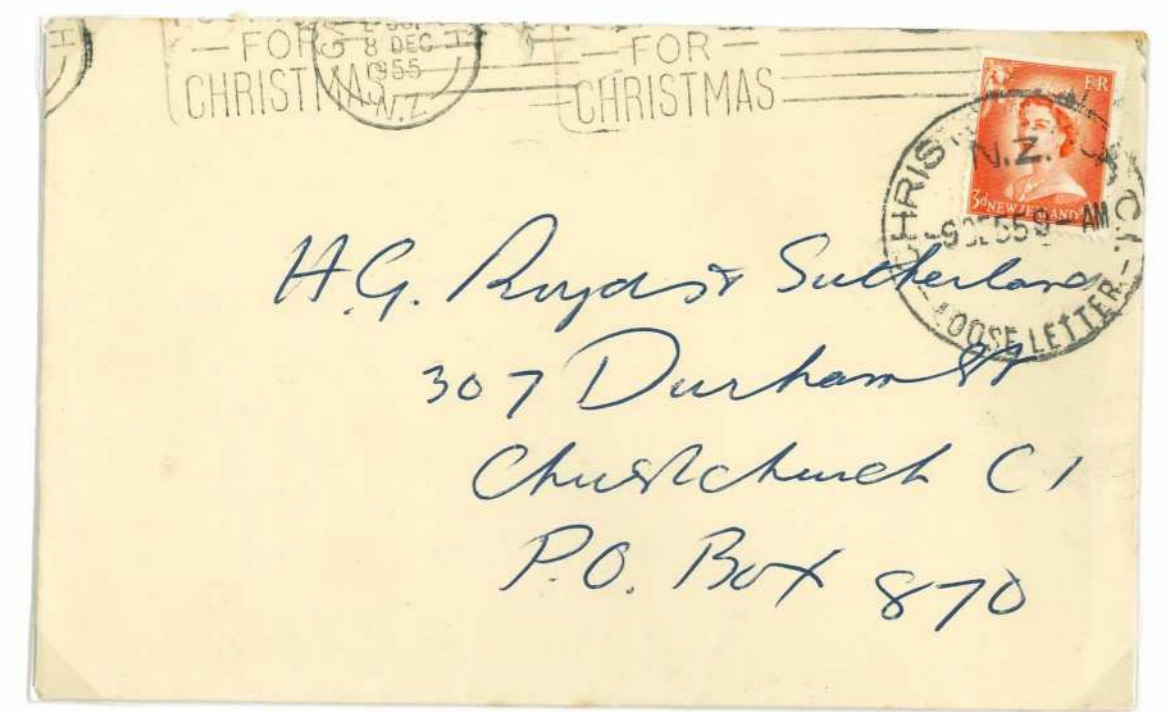 — FOR —
CHRISTMAS
8 DEC
1955
N.Z.
— FOR —
CHRISTMAS
E R
3d NEW ZEALAND
N.Z.
-9 DE 55 9 - AM
- LOOSE LETTER -
H.G. Royds & Sutherland
307 Durham St
Christchurch C1
P.O. Box 870